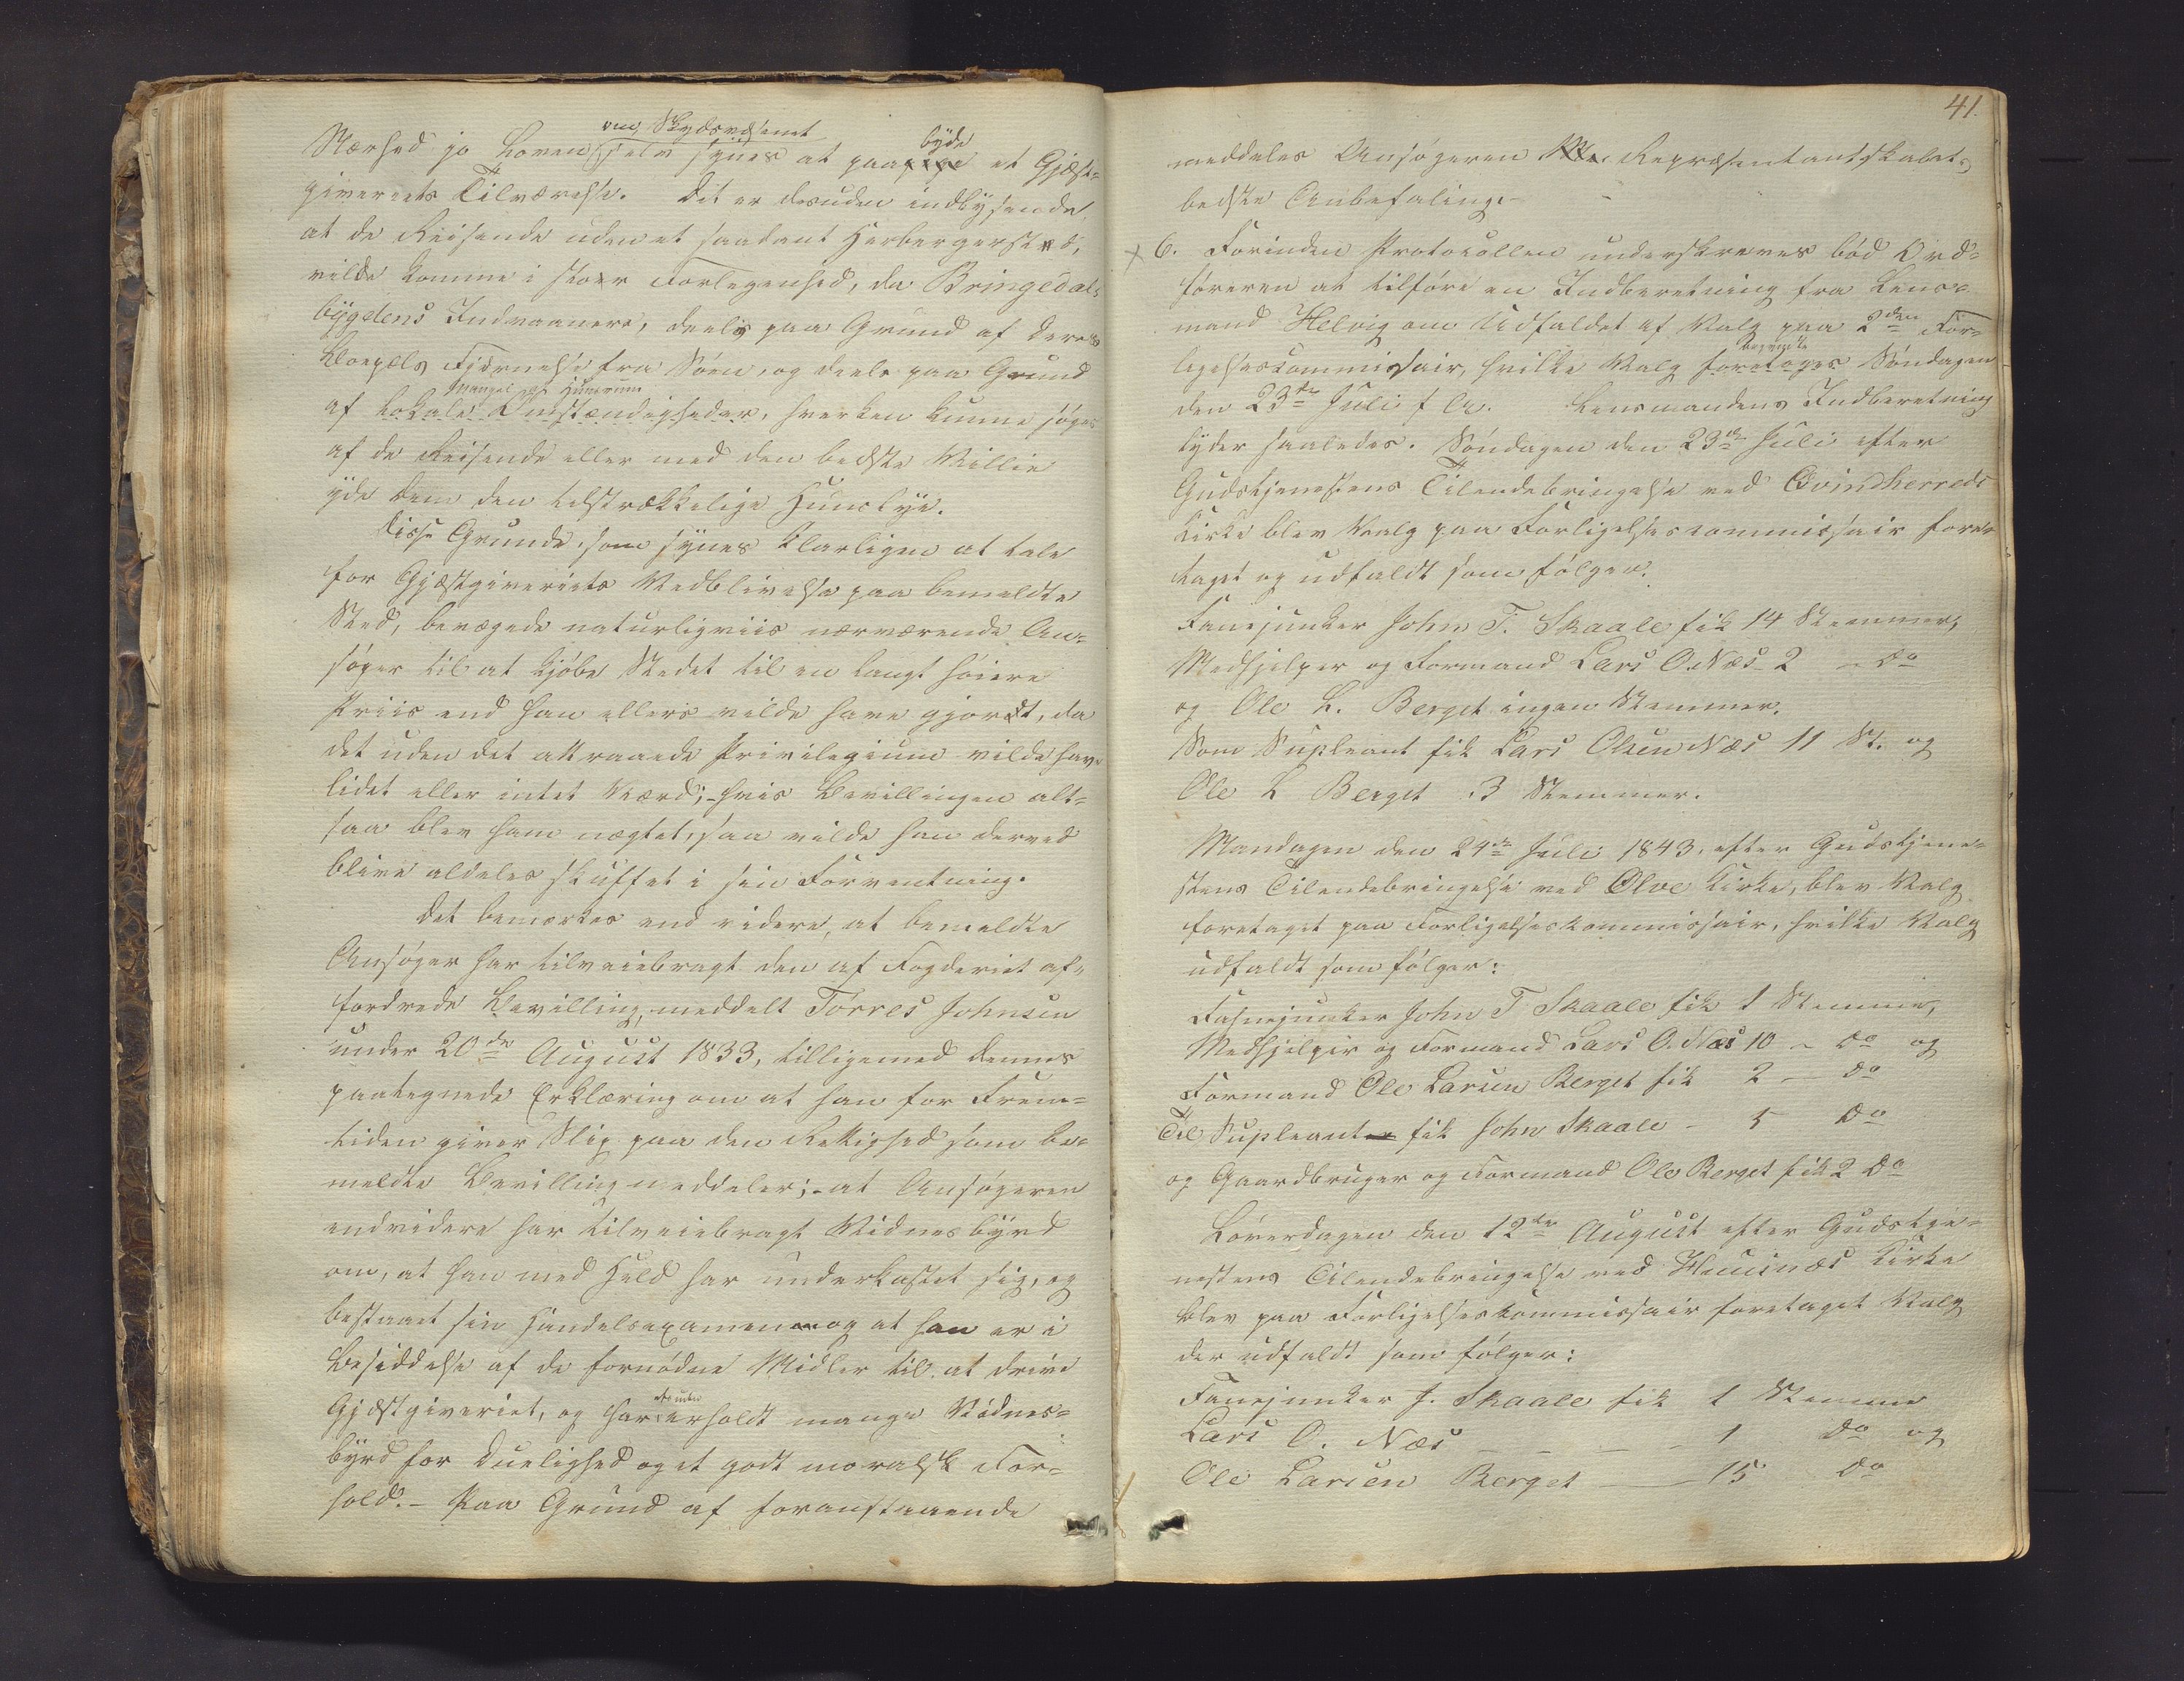 om Skydsvæsenet
Nærhed jo Loven selv synes at paa byde et Gjæst=
giveriets Tilværelse. Dit er desuden indlysende
at de Reisende uden et saadant Herbergersted,
vilde komme i stoer Forlegenhed, da Bringedals
bygdens Indvaanere, deels paa Grund af deres
Bopæls Fjernelse fra Søen, og deels paa Grund
Mangel paa Huusrum
af lokale Omstændigheder, hverken kunne søges
af de Reisende eller med den bedste Villie
yde dem den tilstrækkelige Huuslye.
Disse Grunde, som synes klarligen at tale
for Gjæstgiveriets Vedblivelse paa bemeldte
Sted, bevægede naturligviis nærværende An=
søger til at kjøbe Stedet til en langt høiere
Priis end han ellers vilde have gjordt, da
det uden det attraaede Privilegium vilde have
lidet eller intet Værd; - hvis Bevillingen alt=
saa blev ham nægtet, saa vilde han derved
blive aldeles skuffet i sin Forventning.
Det bemærkes end videre, at bemeldte
Ansøger har tilveiebragt den af Fogderiet af=
fordrede Bevilling, meddelt Torres Johnsen
under 20de August 1833, tilligemed dennes
paategnede Erklæring om at han for Frem=
tiden giver Slip paa den Rettighed som be=
meldte Bevilling meddeler; - at Ansøgeren
endvidere har tilveiebragt Vidnesbyrd
om, at han med Held har underkastet sig, og
bestaaet sin Handelsexamen og at han er i
Besiddelse af de fornødne Midler til at drive
Gjæstgiveriet, og har desuden erholdt mange Vidnes=
byrd for Duelighed og et godt moralsk For=
hold. - Paa Grund af foranstaaende
41.
meddeles Ansøgeren Repræsentantskabets
bedste Anbefaling. -
x 6. Forinden Protocollen underskreves bød Ord=
føreren at tilføre en Indberetning fra Lens=
mand Helvig om Udfaldet af Valg paa 2den For=
ligelsescommissair, hvilke Valg foretoges Søndagen
den 23de Juli f A. Lensmandens Indberetning
lyder saaledes. Søndagen den 23de Juli efter
Gudstjenestens Tilendebringelse ved Qvindherreds
Kirke blev Valg paa Forligelsescommissair fore=
taget og udfaldt som følger:
Fanejunker John T. Skaale fik 14 Stemmer,
Medhjelper og Formand Lars O. Næs 2 - Do
og Ole L. Berget ingen Stemmer.
Som Supleant fik Lars Olsen Næs 11 St. og
Ole L Berget 3 Stemmer.
Mandagen den 24de Juli 1843, efter Gudstjene=
stens Tilendebringelse ved Ølve Kirke, blev Valg
foretaget paa Forligelseskommissair, hvilke Valg
udfaldt som følger:
Fahnejunker John T Skaale fik 1 Stemme,
Medhjelper og Formand Lars O. Næs 10 - Do og
Formand Ole Larsen Berget fik 2 - Do
Til Supleant fik John Skaale - 5 Do
og Gaardbruger og Formand Ole Berget fik 2 Do
Løverdagen den 12te August efter Gudstje=
nestens Tilendebringelse ved Huusnæs Kirke
blev paa Forligelseskommissair foretaget Valg
der udfaldt som følger:
Fanejunker J. Skaale fik 1 Stemme
Lars O. Næs - - - - 1 Do og
Ole Larsen Berget - 15 Do